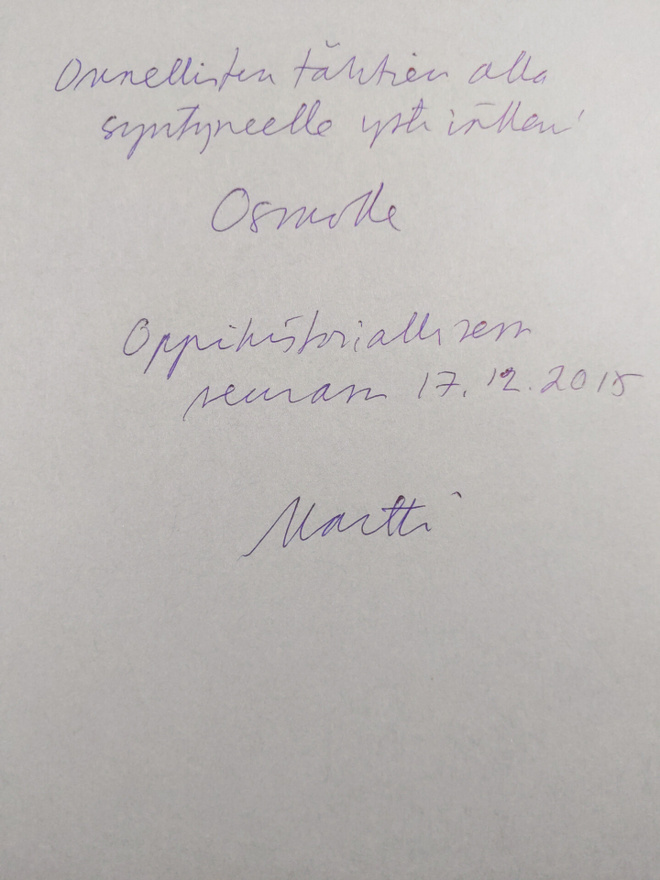 Onnellisten tähtien alla
syntyneelle ystävälleni
Osmolle
Oppihistoriallisessa
seurassa 17.12.2015
Martti